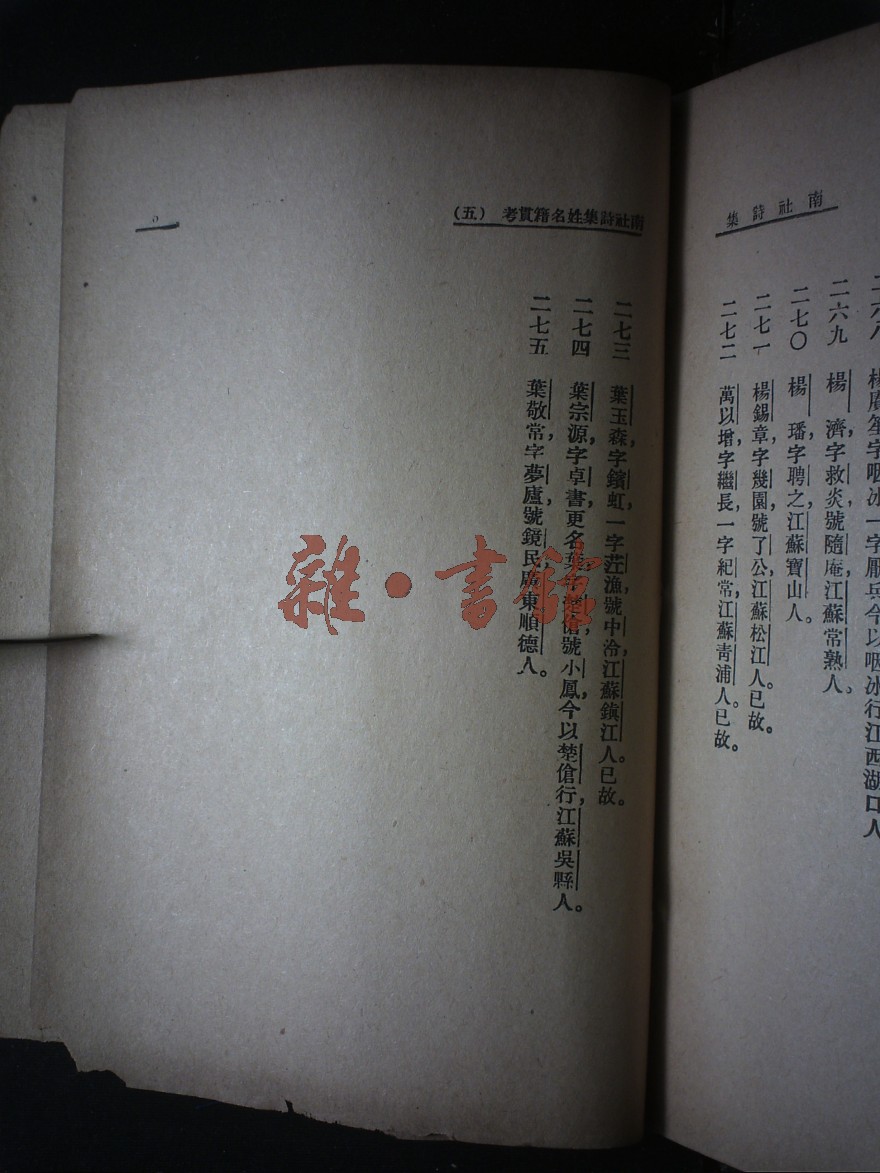 南社詩集
二六八 楊賡笙字咽冰一字厭兵今以咽冰行江西湖口人
二六九 楊 濟，字救炎，號隨庵，江蘇常熟人。
二七〇 楊 璠，字聘之，江蘇寶山人。
二七一 楊錫章，字幾園，號了公，江蘇松江人。已故。
二七二 萬以增，字繼長，一字紀常，江蘇青浦人。已故。
南社詩集姓名籍貫考（五）
二七三 葉玉森，字鑌虹，一字漁，號中冷，江蘇鎮江人。已故。
二七四 葉宗源，字卓書，更名葉傖，號小鳳，今以楚傖行，江蘇吳縣人。
二七五 葉敬常，字夢廬，號鏡民，廣東順德人。
雜·書館